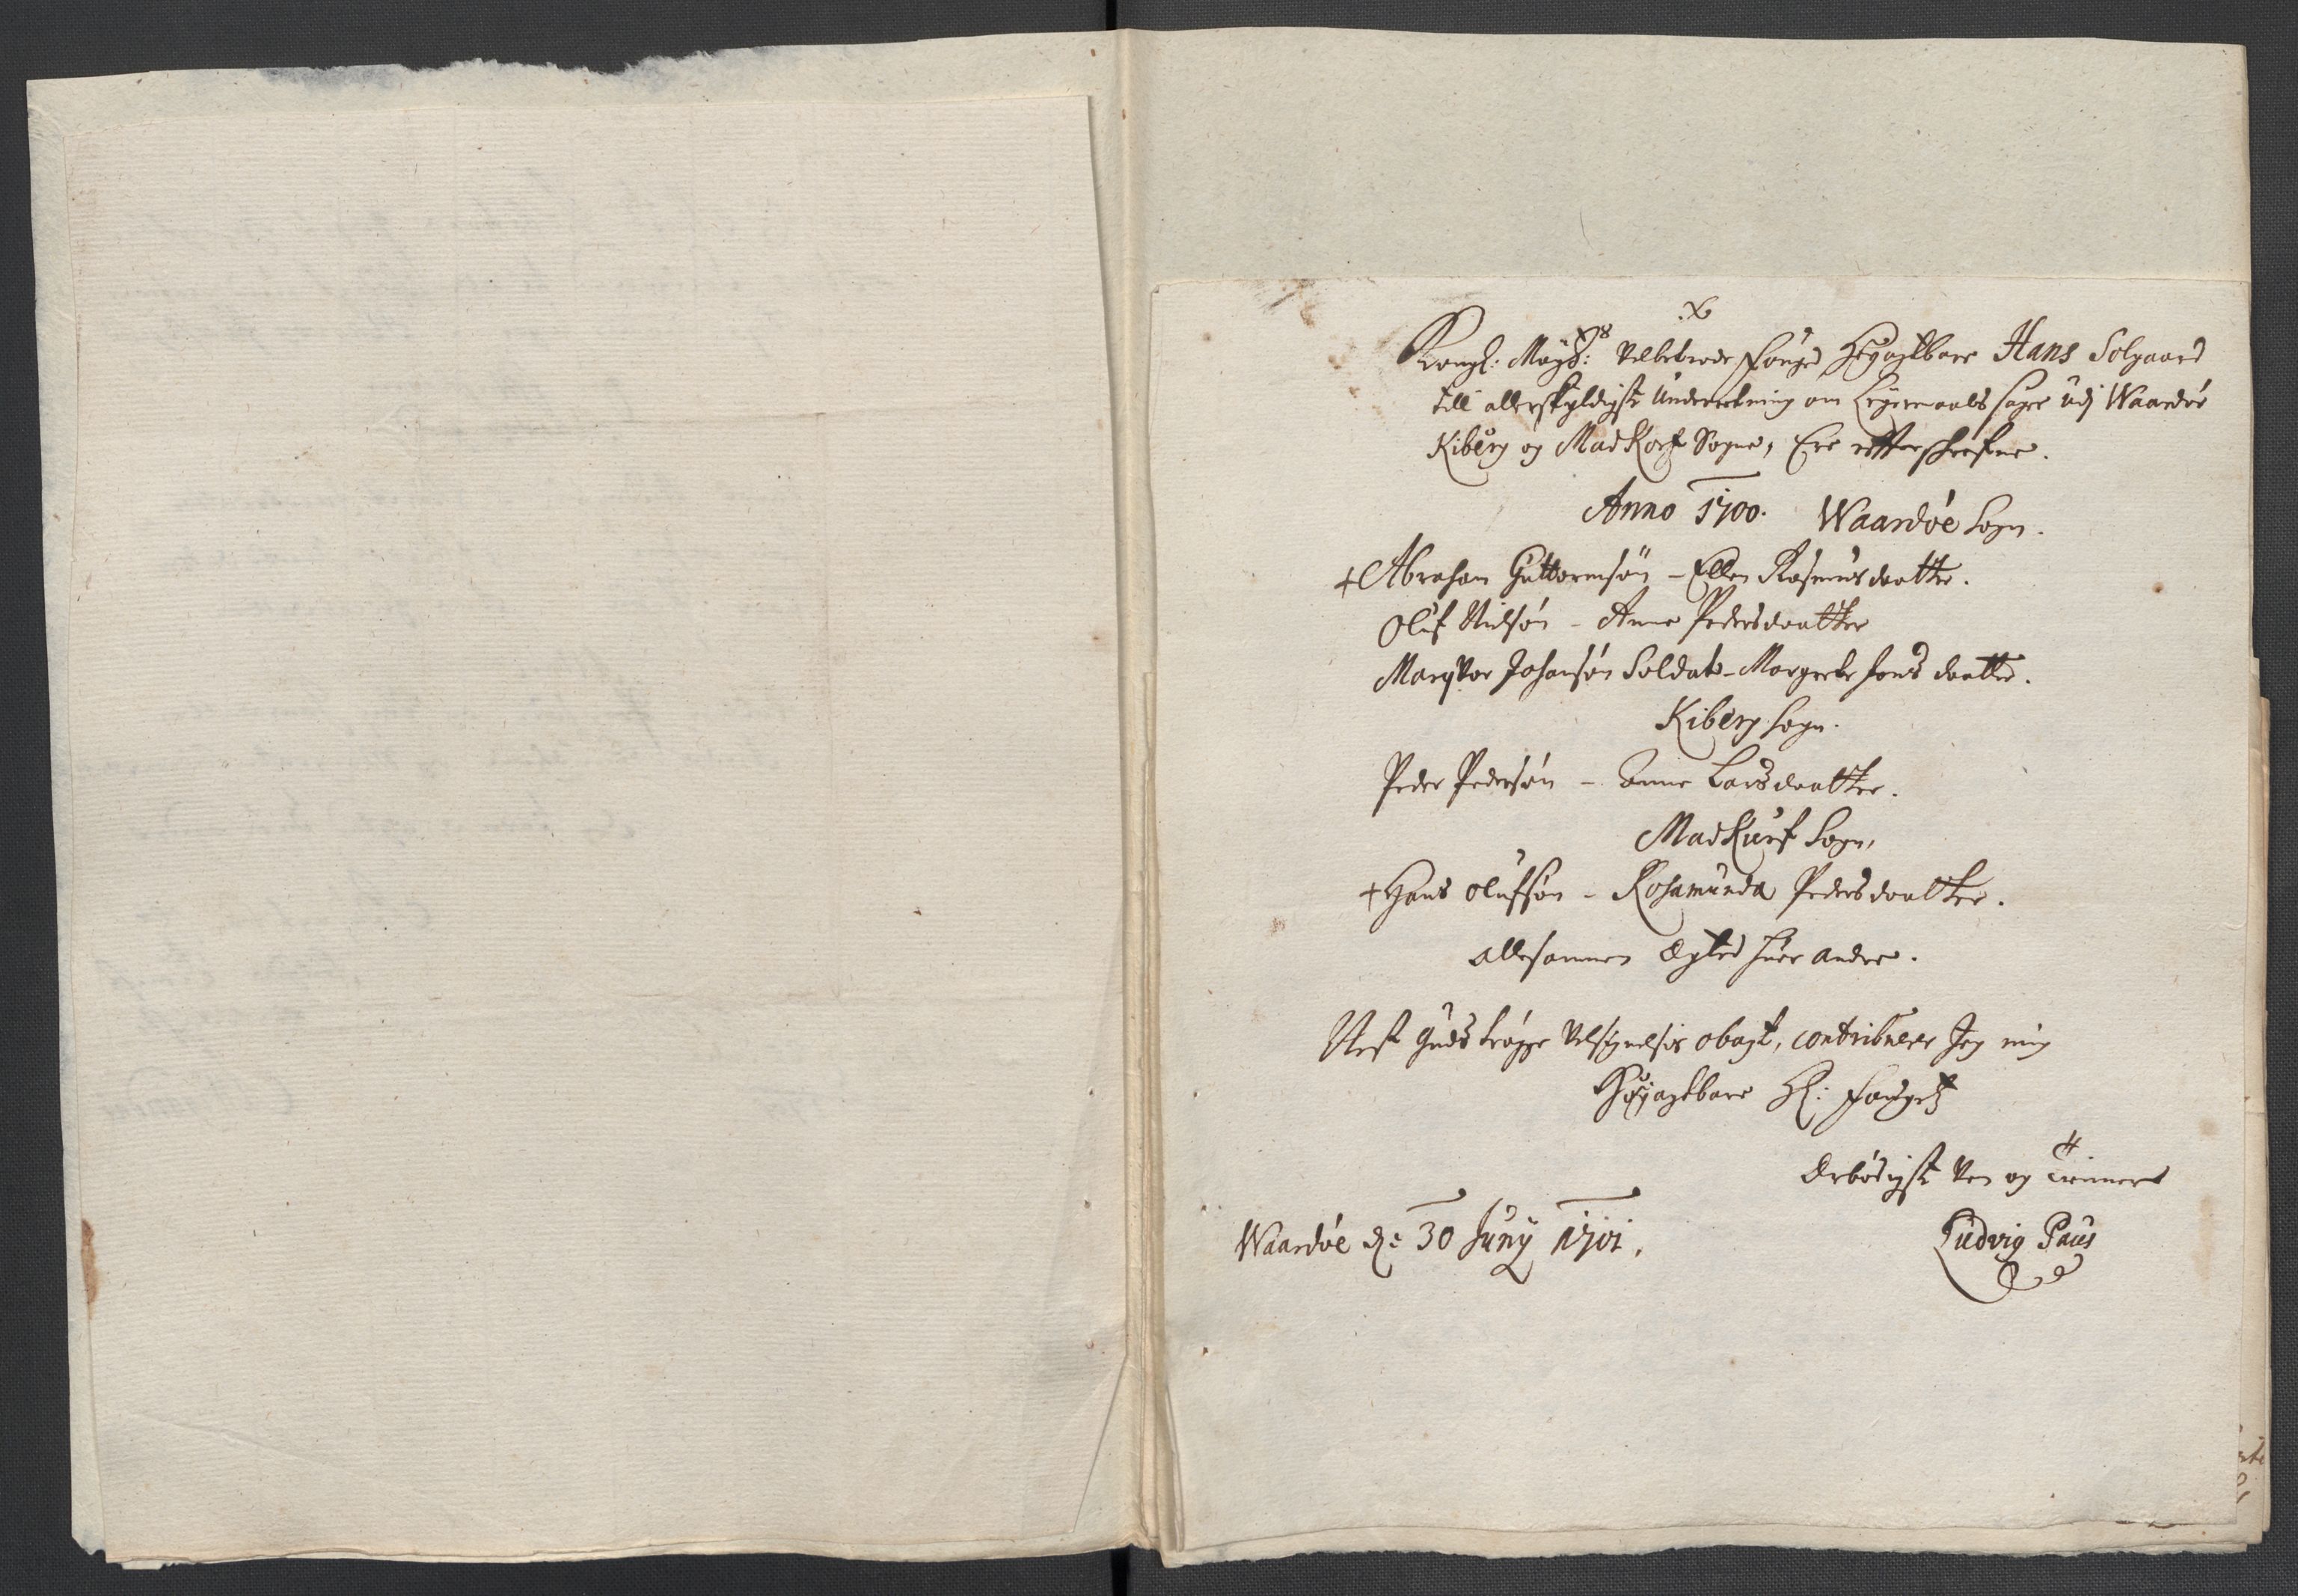 Kongl: Mayts: Velbetrode Fouged Høyagtbare Hans Solgaard
till allerskyldigst Underretning om Leyermaals sager udj Waardøe
Kiberg og Madkorf Sogne, Ere efterschrefne.
Anno 1700. Waardøe Sogn.
+ Abraham Guttormsøn - Ellen Rasmusdaatter.
Oluf Nielsøn - Anne Pedersdaatter
Marqvor Johansøn Soldat - Margrete Jensdaatter.
Kiberg Sogn.
Peder Pedersøn - Anne Larsdaatter.
Madkurf Sogn,
+ Hans Olufsøn - Rosamunda Pedersdaatter.
allesammen Egted huer andre.
Nest Guds trögge Velsignelsis obagt, contribuere Jeg mig
Høyagtbare Hr: Fougets
Erbødigst Ven og Tienner
Waardøe de: 30 Juny 1701.
Ludvig Paus